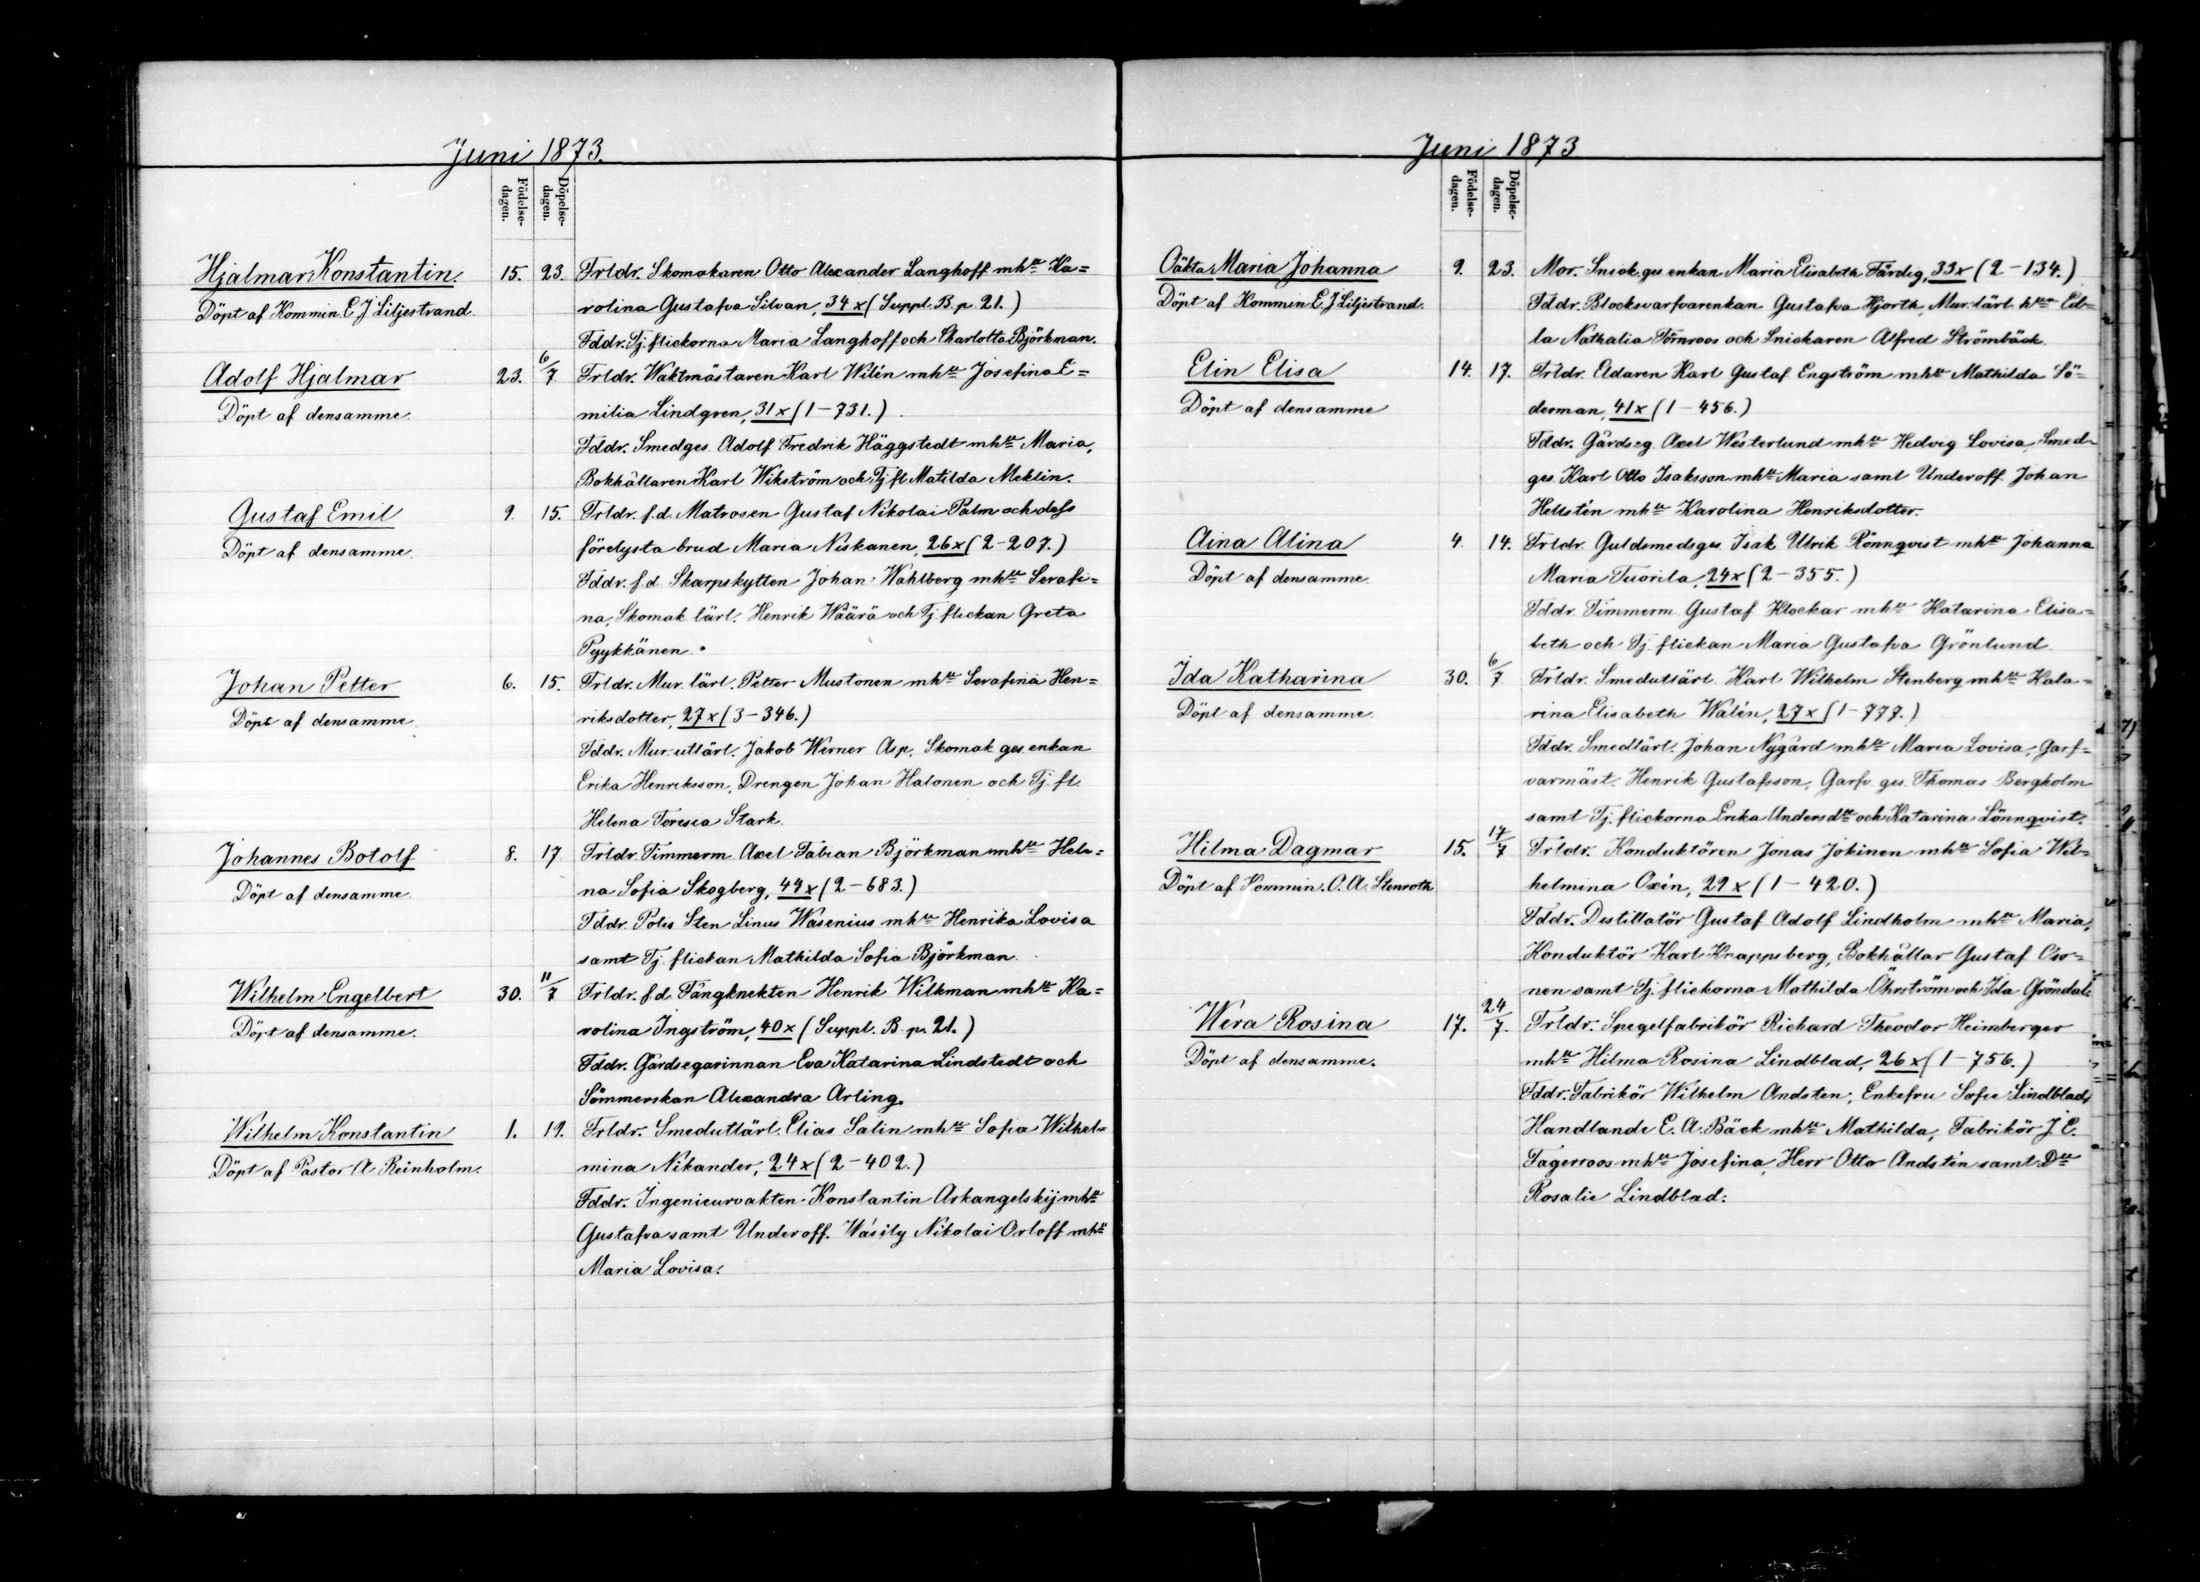 Juni 1873.
Födelse-
dagen.
Döpelse-
dagen.
Hjalmar Konstantin. 15. 23. Frldr. Skomakaren Otto Alexander Langhoff mhu Ka=
Döpt af Kommin. E J Liljestrand. rolina Gustafva Silvan, 34 x (Suppl. B. p. 21.)
Fddr. Tj. flickorna Maria Langhoff och Charlotta Björkman.
Adolf Hjalmar 23. 6/7 Frldr. Waktmästaren Karl Wilén mhu Josefina E=
Döpt af densamme. milia Lindgren, 31 x (1-731.)
Fddr. Smedges. Adolf Fredrik Häggstedt mhu Maria,
Bokhållaren Karl Wikström och Tj fl Matilda Meklin.
Gustaf Emil 9. 15. Frldr. f.d. Matrosen Gustaf Nikolai Palm och dess
Döpt af densamme. förelysta brud Maria Niskanen, 26 x (2-207.)
Fddr. f.d. Skarpskytten Johan Wahlberg mhu Serafi=
na, Skomak lärl. Henrik Wäärä och Tj flickan Greta
Pyykkänen.
Johan Petter 6. 15. Frldr. Mur. lärl. Petter Mustonen mhu Serafina Hen=
Döpt af densamme. riksdotter, 27 x (3-346.)
Fddr. Mur. utlärl. Jakob Werner Asp, Skomak ges. enkan
Erika Henriksson, Drengen Johan Halonen och Tj. fl.
Helena Teresia Stark.
Johannes Botolf 8. 17 Frldr. Timmerm. Axel Fabian Björkman mhu Hele=
Döpt af densamme. na Sofia Skogberg, 44 x (2-683.)
Fddr. Polis Sten Linus Wasenius mhu Henrika Lovisa
samt Tj. flickan Mathilda Sofia Björkman.
Wilhelm Engelbert 30. 11/7 Frldr. f.d. Fångknekten Henrik Wilkman mhu Ka=
Döpt af densamme. rolina Ingström, 40 x (Suppl. B. p. 21.)
Fddr. Gårdsegarinnan Eva Katarina Lindstedt och
Sömmerskan Alexandra Arling.
Wilhelm Konstantin 1. 19. Frldr. Smedutlärl. Elias Salin mhu Sofia Wilhel=
Döpt af Pastor A. Reinholm. mina Nikander, 24 x (2-402.)
Fddr. Ingenieurvakten Konstantin Arkangelskij mhu
Gustafva samt Underoff. Wasily Nikolai Orloff mhu
Maria Lovisa.
Juni 1873
Födelse-
dagen.
Döpelse-
dagen.
Oäkta Maria Johanna 9. 23. Mor. Snick. ges. enkan Maria Elisabeth Färdig, 33 x (2-134.)
Döpt af Kommin E J Liljestrand. Fddr. Blocksvarfvarenkan Gustafva Hjorth, Mur. lärl. hru Ed=
la Nathalia Törnroos och Snickaren Alfred Strömbäck.
Elin Elisa 14. 17. Frldr. Eldaren Karl Gustaf Engström mhu Mathilda Sö=
Döpt af densamme derman, 41 x (1-456.)
Fddr. Gårdseg. Axel Westerlund mhu Hedvig Lovisa, Smed=
ges. Karl Otto Isaksson mhu Maria samt Underoff. Johan
Hellstén mhu Karolina Henriksdotter.
Aina Alina 4. 14. Frldr. Guldsmedsges. Isak Ulrik Rönnqvist mhu Johanna
Döpt af densamme. Maria Tuorila, 24 x (2-355.)
Fddr. Timmerm. Gustaf Klockar mhu Katarina Elisa=
beth och Tj. flickan Maria Gustafva Grönlund.
Ida Katharina 30. 6/7 Frldr. Smedutlärl. Karl Wilhelm Stenberg mhu Kata=
Döpt af densamme. rina Elisabeth Walén, 27 x (1-777.)
Fddr. Smedlärl. Johan Nygård mhu Maria Lovisa, Garf=
varmäst. Henrik Gustafsson, Garfv. ges. Thomas Bergholm
samt Tj. flickorna Erika Andersdr och Katarina Lönnqvist.
Hilma Dagmar 15. 17/7 Frldr. Konduktören Jonas Jokinen mhu Sofia Wil=
Döpt af Kommin. O. A. Stenroth helmina Oxén, 29 x (1-420.)
Fddr. Destillatör Gustaf Adolf Lindholm mhu Maria,
Konduktör Karl Knappsberg, Bokhållar Gustaf
nen samt Tj. flickorna Mathilda Öhrström och Ida Gröndal.
Wera Rosina 17. 24/7. Frldr. Spegelfabrikör Richard Theodor Heimberger
Döpt af densamme. mhu Hilma Rosina Lindblad, 26 x (1-756.)
Fddr. Fabrikör Wilhelm Andsten, Enkefru Sofie Lindblad,
Handlande E. A. Bäck mhu Mathilda, Fabrikör J. E.
Fagerroos mhu Josefina, Herr Otto Andstén samt Dll
Rosalie Lindblad.